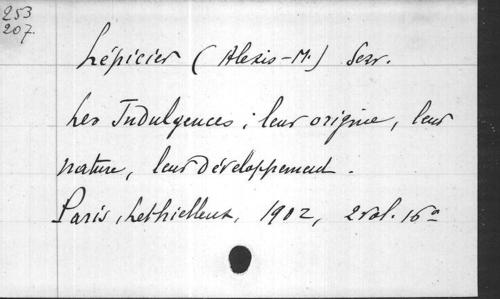 253
207.
Lépicier (Alexis-M.) Serv.
Les Indulgences ; leur origine, leur
nature, leur développement.
Paris, Lethielleux, 1902, 2 vol. 16º